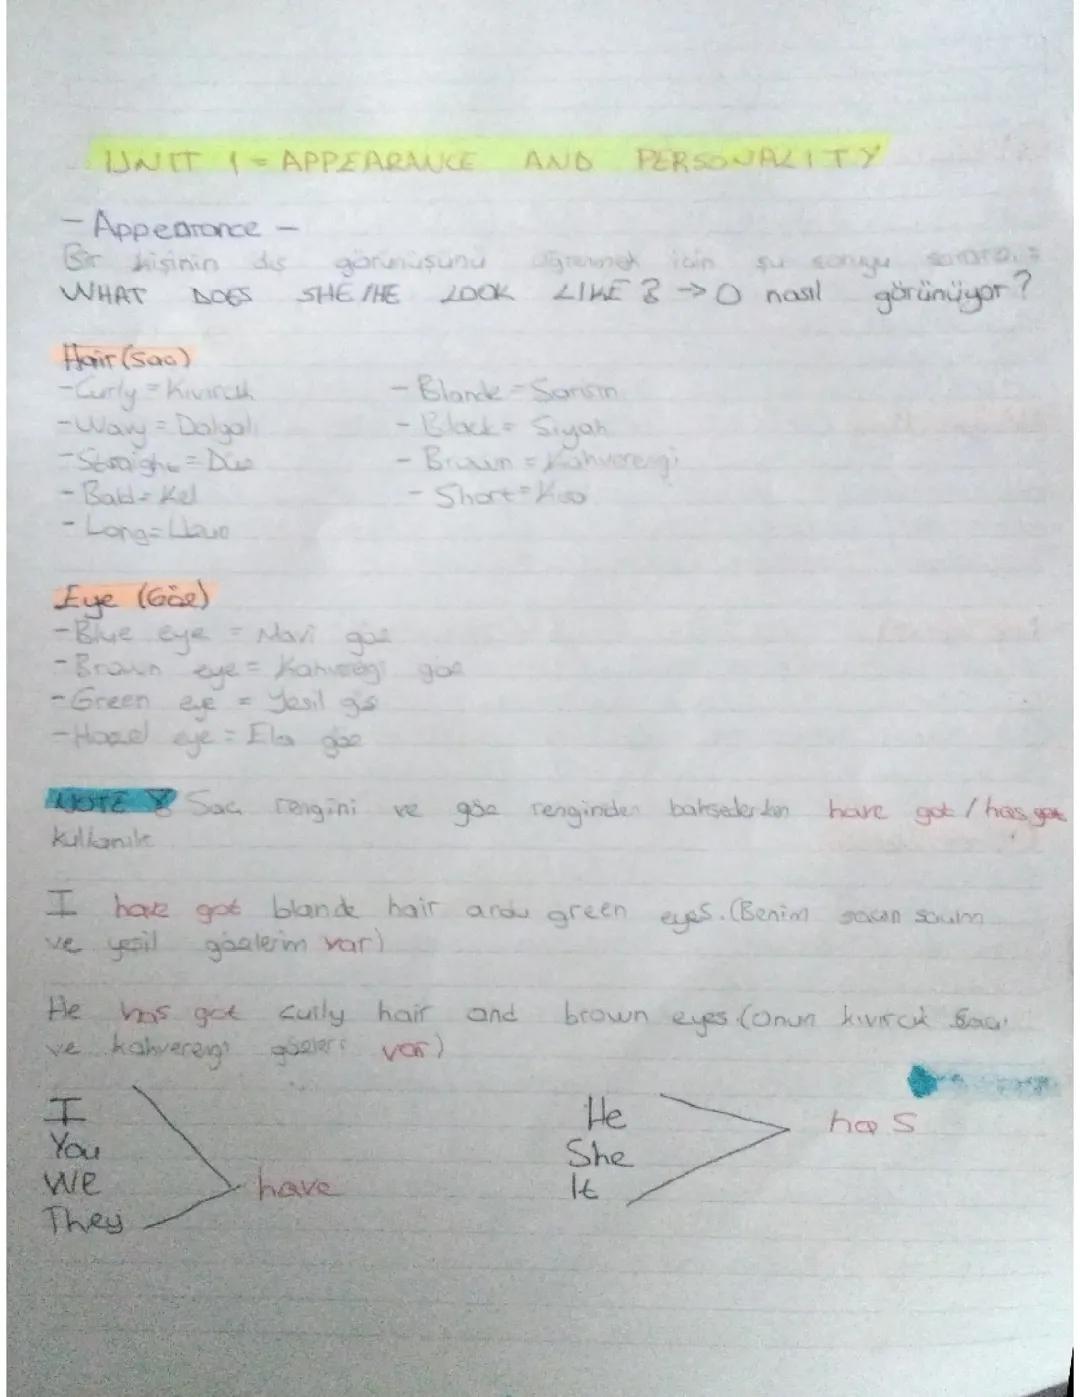 UNIT 1 = APPEARANCE AND PERSONALITY
- Appearance -
Bir kişinin dış görünüşünü öğrenmek için şu soruyu sorarız:
WHAT DOES SHE/HE LOOK LIKE? → O nasıl görünüyor?
Hair (Saç)
- Curly = Kıvırcık
- Wavy = Dalgalı
- Straight = Düz
- Bald = Kel
- Long = Uzun
- Blonde = Sarışın
- Black = Siyah
- Brown = Kahverengi
- Short = Kısa
Eye (Göz)
- Blue eye = Mavi göz
- Brown eye = Kahverengi göz
- Green eye = Yeşil göz
- Hazel eye = Ela göz
NOTE: Saç rengini ve göz renginden bahsederken have got / has got
kullanılır
I have got blande hair and green eyes. (Benim saçım sarı
ve yeşil gözlerim var)
He has got curly hair and brown eyes (Onun kıvırcık saçı
ve kahverengi gözleri var)
I
You
We
They
have
He
She
It
has